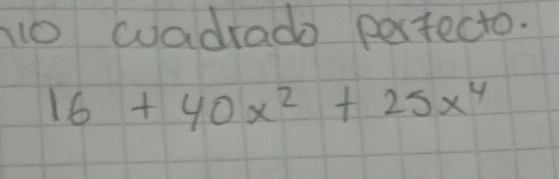 nio cuadrado perfecto.
16 + 40x² + 25x⁴